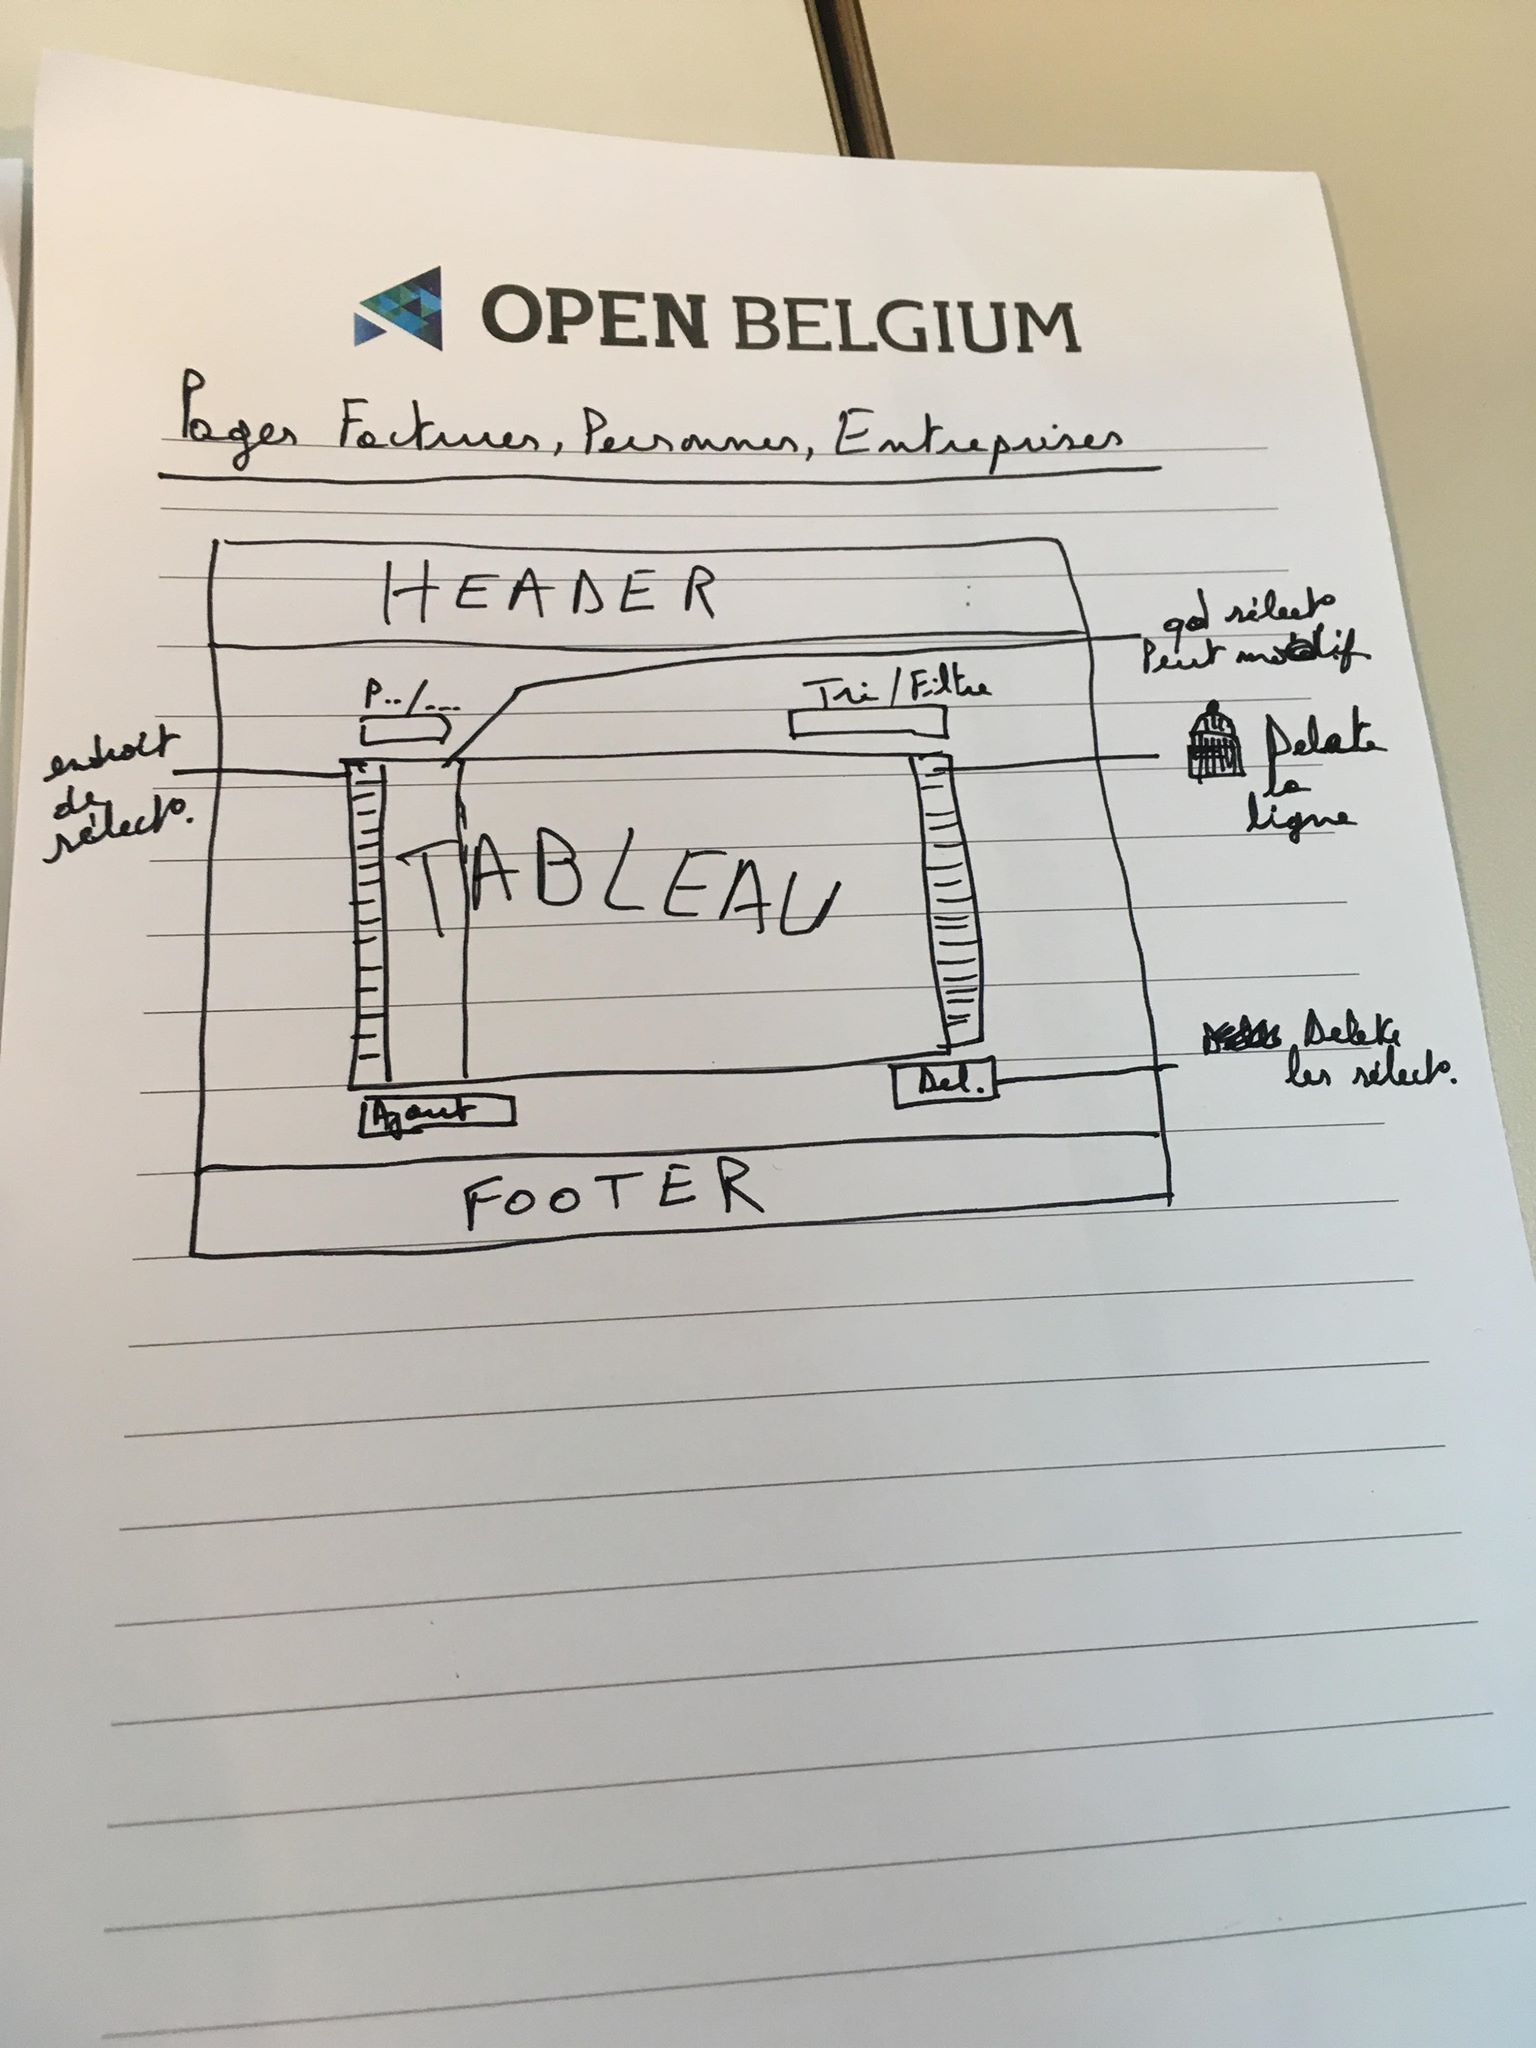 OPEN BELGIUM
Pages Factures, Personnes, Entreprises
HEADER
qd sélect°
Peut modif
P../...
Tri/Filtre
endroit
de
sélect°.
Delete
la
ligne
TABLEAU
Delete
les sélect°.
Del.
Ajout
FOOTER